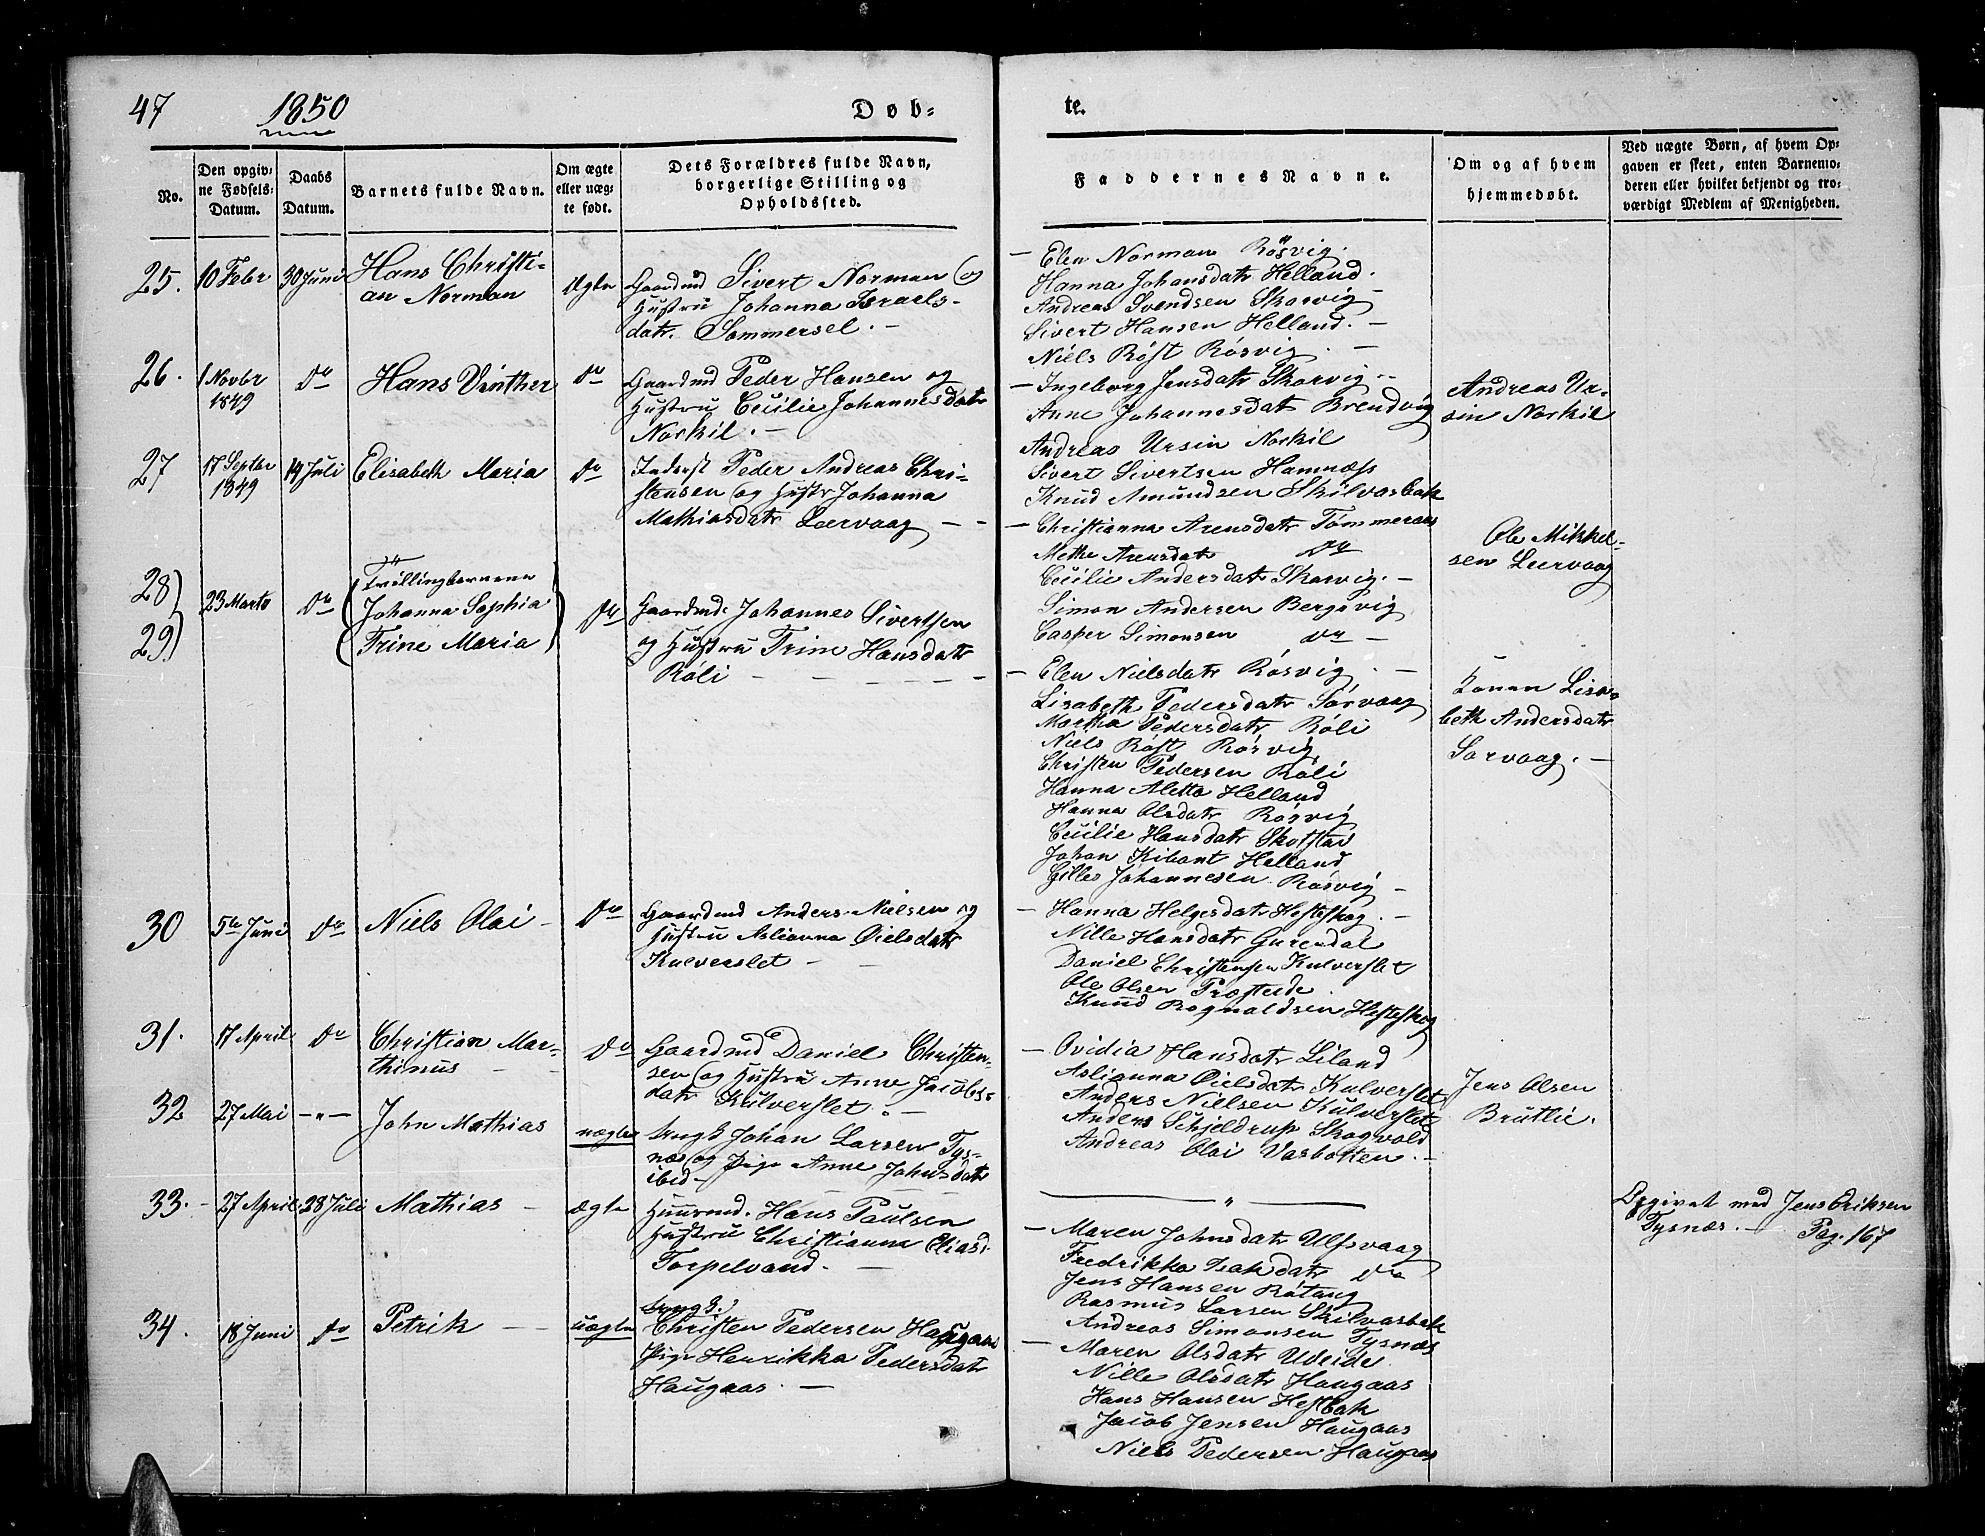 47 1850 Døb-
te.
No.
Den opgiv-
ne Fødsels-
Datum.
Daabs
Datum.
Barnets fulde Navn.
Om ægte
eller uæg-
te født.
Dets Forældres fulde Navn,
borgerlige Stilling og
Opholdssted.
Faddernes Navne.
Om og af hvem
hjemmedøbt.
Ved uægte Børn, af hvem Op-
gaven er skeet, enten Barnemo-
deren eller hvilket bekjendt og tro-
værdigt Medlem af Menigheden.
25. 10 Febr 30 Juni
Hans Christi-
an Norman
Ægte
Gaardmd Sivert Norman og
Hustru Johanna Israels-
datr. Sommersel. —
— Elen Norman Rösvig.
Hanna Johansdatr Helland.
Andreas Svendsen Skarvig —
Sivert Hansen Helland. —
Niels Röst Rösvig. —
26. 1 Novbr
1849
Do
Hans Vinther
Do
Gaardmd Peder Hansen og
Hustru Cecilie Johannesdatr
Norkil. —
— Ingeborg Jensdatr Skarvig. —
Anne Johannesdatr Brendvig
Andreas Ursin Norkil
Sivert Sivertsen Hamnæss
Knud Amundsen Skilvasbak
Andreas Ur-
sin Norkil
27 17 Septbr
1849
14 Juli
Elisabeth Maria
Do
Inderst Peder Andreas Chri-
stensen og Hustr Johanna
Mathiasdatr Leervaag — —
— Christianna Arensdatr Tömmeraas
Methe Arensdatr Do
Cecilie Andersdatr Skarvig. —
Simon Andersen Bergsvig
Casper Simonsen Do —
Ole Mikkel-
sen Leervaag
28)
29)
23 Marts Do
Tvillingbørnene
Johanna Sophia
Trine Maria
Do
Gaardmd. Johannes Sivertsen
og Hustru Trine Hansdatr
Röli — — — — — —
— Elen Nielsdatr Rösvig. —
Lisabeth Pedersdatr Sörvaag
Martha Pedersdatr Röli
Niels Röst Rösvig
Christen Pedersen Röli
Hanna Aletta Helland
Hanna Olsdatr Rösvig
Cecilie Hansdatr Skotstøi
Johan Kibant Helland
Gilles Johannesen Rösvig —
Konen Lisa-
beth Andersdatr
Sørvaag. —
30 5te Juni Do Niels Olai — Do
Gaardmd Anders Nielsen og
Hustru Aslianna Øielsdatr
Kulverslet — —
— Hanna Helgesdatr Hesteskog. —
Nille Hansdatr Gurendal
Daniel Christensen Kulverslet
Ole Olsen Præsteide
Knud Rognaldsen Hesteskog
31. 17 April Do
Christian Mar-
thinus — —
Do
Gaardmd Daniel Christen-
sen og Hustru Anne Jacobs-
datr Kulverslet. —
— Ovidia Hansdatr Liland
Aslianna Øielsdatr Kulverslet
Anders Nielsen Kulverslet
Anders Schjeldrup Skogvold
Andreas Olai Vasbotten. —
Jens Olsen
Brutlie.
32 27 Mai —"— John Mathias uægte
Ungk Johan Larsen Tys-
næs og Pige Anne Johnsdatr
ibid —
— " —
Opgivet med Jens Eriksen
Tysnæs. — Pag. 167
33. — 27 April 28 Juli Mathias — ægte
Huusmd. Hans Paulsen
Hustru Christianna Eliasd.
Torpelvand. —
— Maren Johnsdatr Ulfsvaag
Fredrikka Isakdatr Do
Jens Hansen Råtang
Rasmus Larsen Skilvasbak
Andreas Simonsen Tysnæs
34. 18 Juni Do Petrik — uægte
Ungk.
Christen Pedersen Haugaas
Pige Henrikka Pedersdatr
Haugaas. —
— Maren Olsdatr Udeide
Nille Olsdatr Haugaas
Hans Hansen Hestbak
Jacob Jensen Haugaas
Niels Pedersen Haugaas